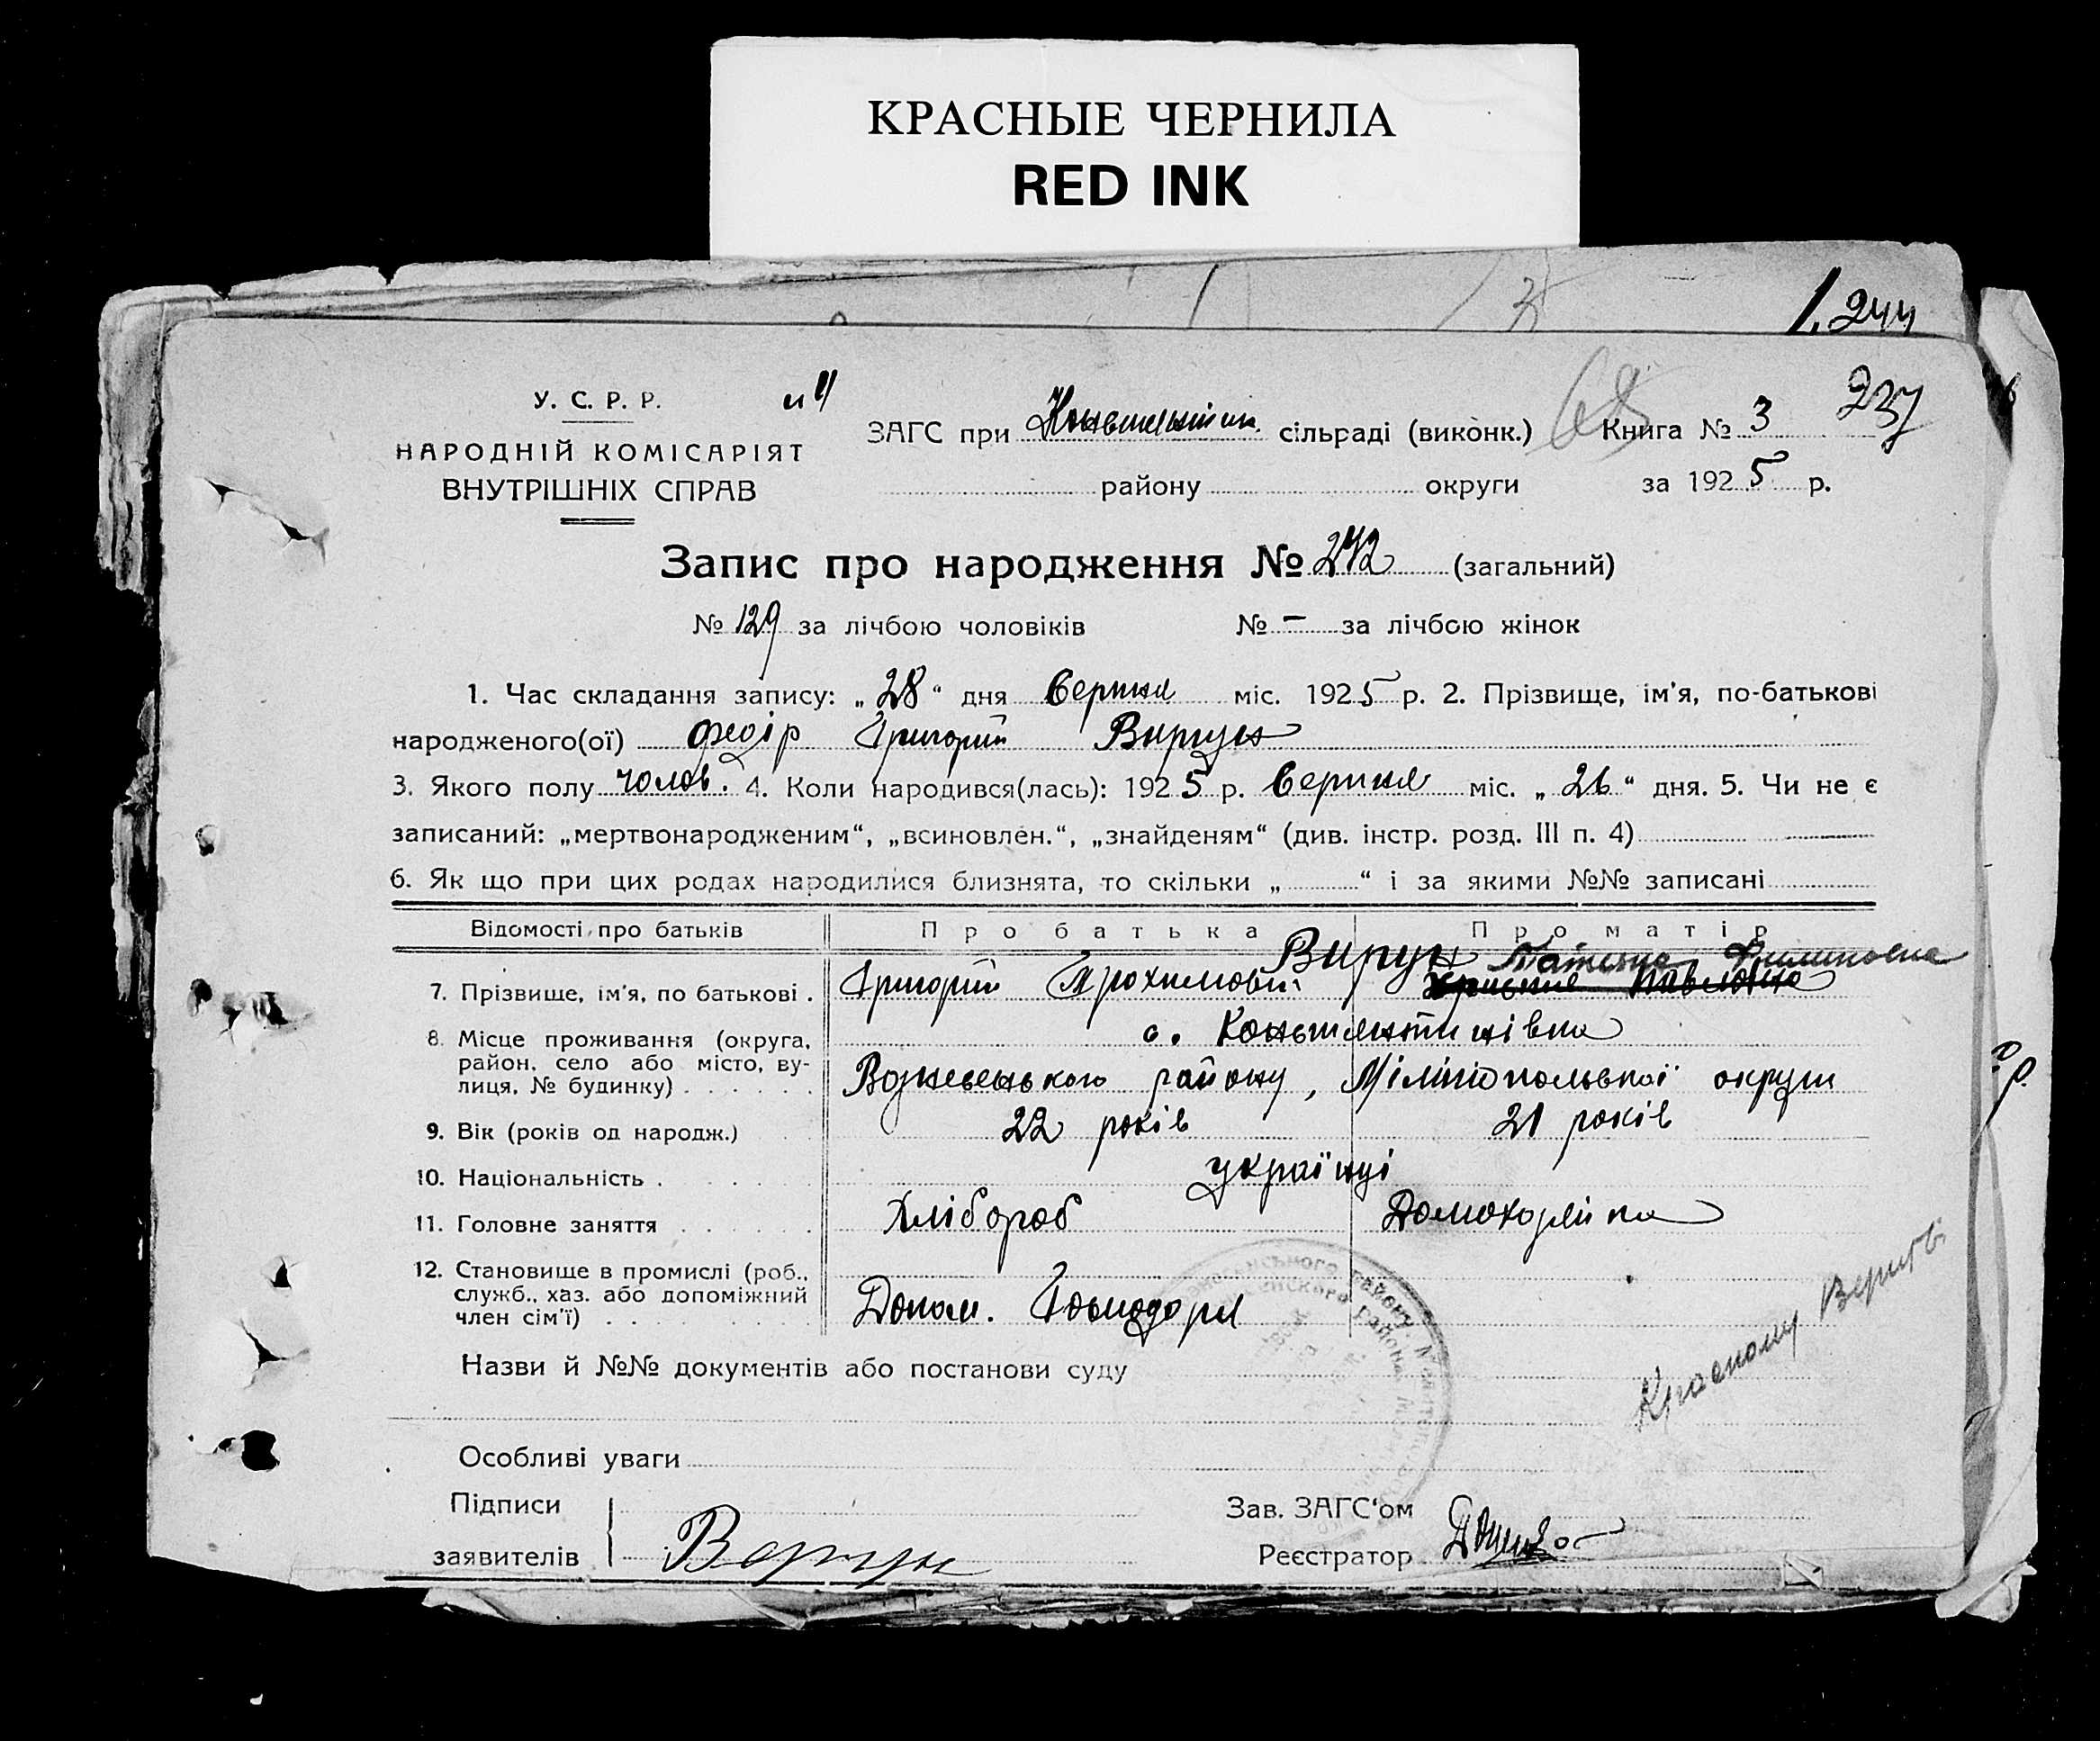 КРАСНЫЕ ЧЕРНИЛА
RED INK
1,244
У. С. Р. Р.
НАРОДНІЙ КОМІСАРІЯТ
ВНУТРІШНІХ СПРАВ
ЗАГС при сільраді (виконк.) Книга № 3 237
району округи за 1925 р.
Запис про народження № 242 (загальний)
№ 129 за лічбою чоловіків № — за лічбою жінок
1. Час складання запису: „28“ дня Вересня міс. 1925 р. 2. Прізвище, ім'я, по-батькові
народженого(ої) Федір Григорій Вирун
3. Якого полу чолов. 4. Коли народився(лась): 1925 р. Вересня міс. „26“ дня. 5. Чи не є
записаний: „мертвонародженим“, „всиновлен.“, „знайденям“ (див. інстр. розд. III п. 4)
6. Як що при цих родах народилися близнята, то скільки „ “ і за якими №№ записані
Відомості про батьків Про батька Про матір
Вирун Татьяна Филиповна
7. Прізвище, ім'я, по батькові . Григорий Трохимович Павловна
8. Місце проживання (округа, район, село або місто, вулиця, № будинку) с. Константинівка
Вознесенського району, Мелітопольської округи
9. Вік (років од народж.) 22 років 21 років
10. Національність . українці
11. Головне заняття Хлібороб Домохозяйка
12. Становище в промислі (роб., служб., хаз. або допоміжний член сім'ї) Допом. Господаря
Назви й №№ документів або постанови суду
Особливі уваги
Підписи
заявителів
Зав. ЗАГС'ом
Реєстратор